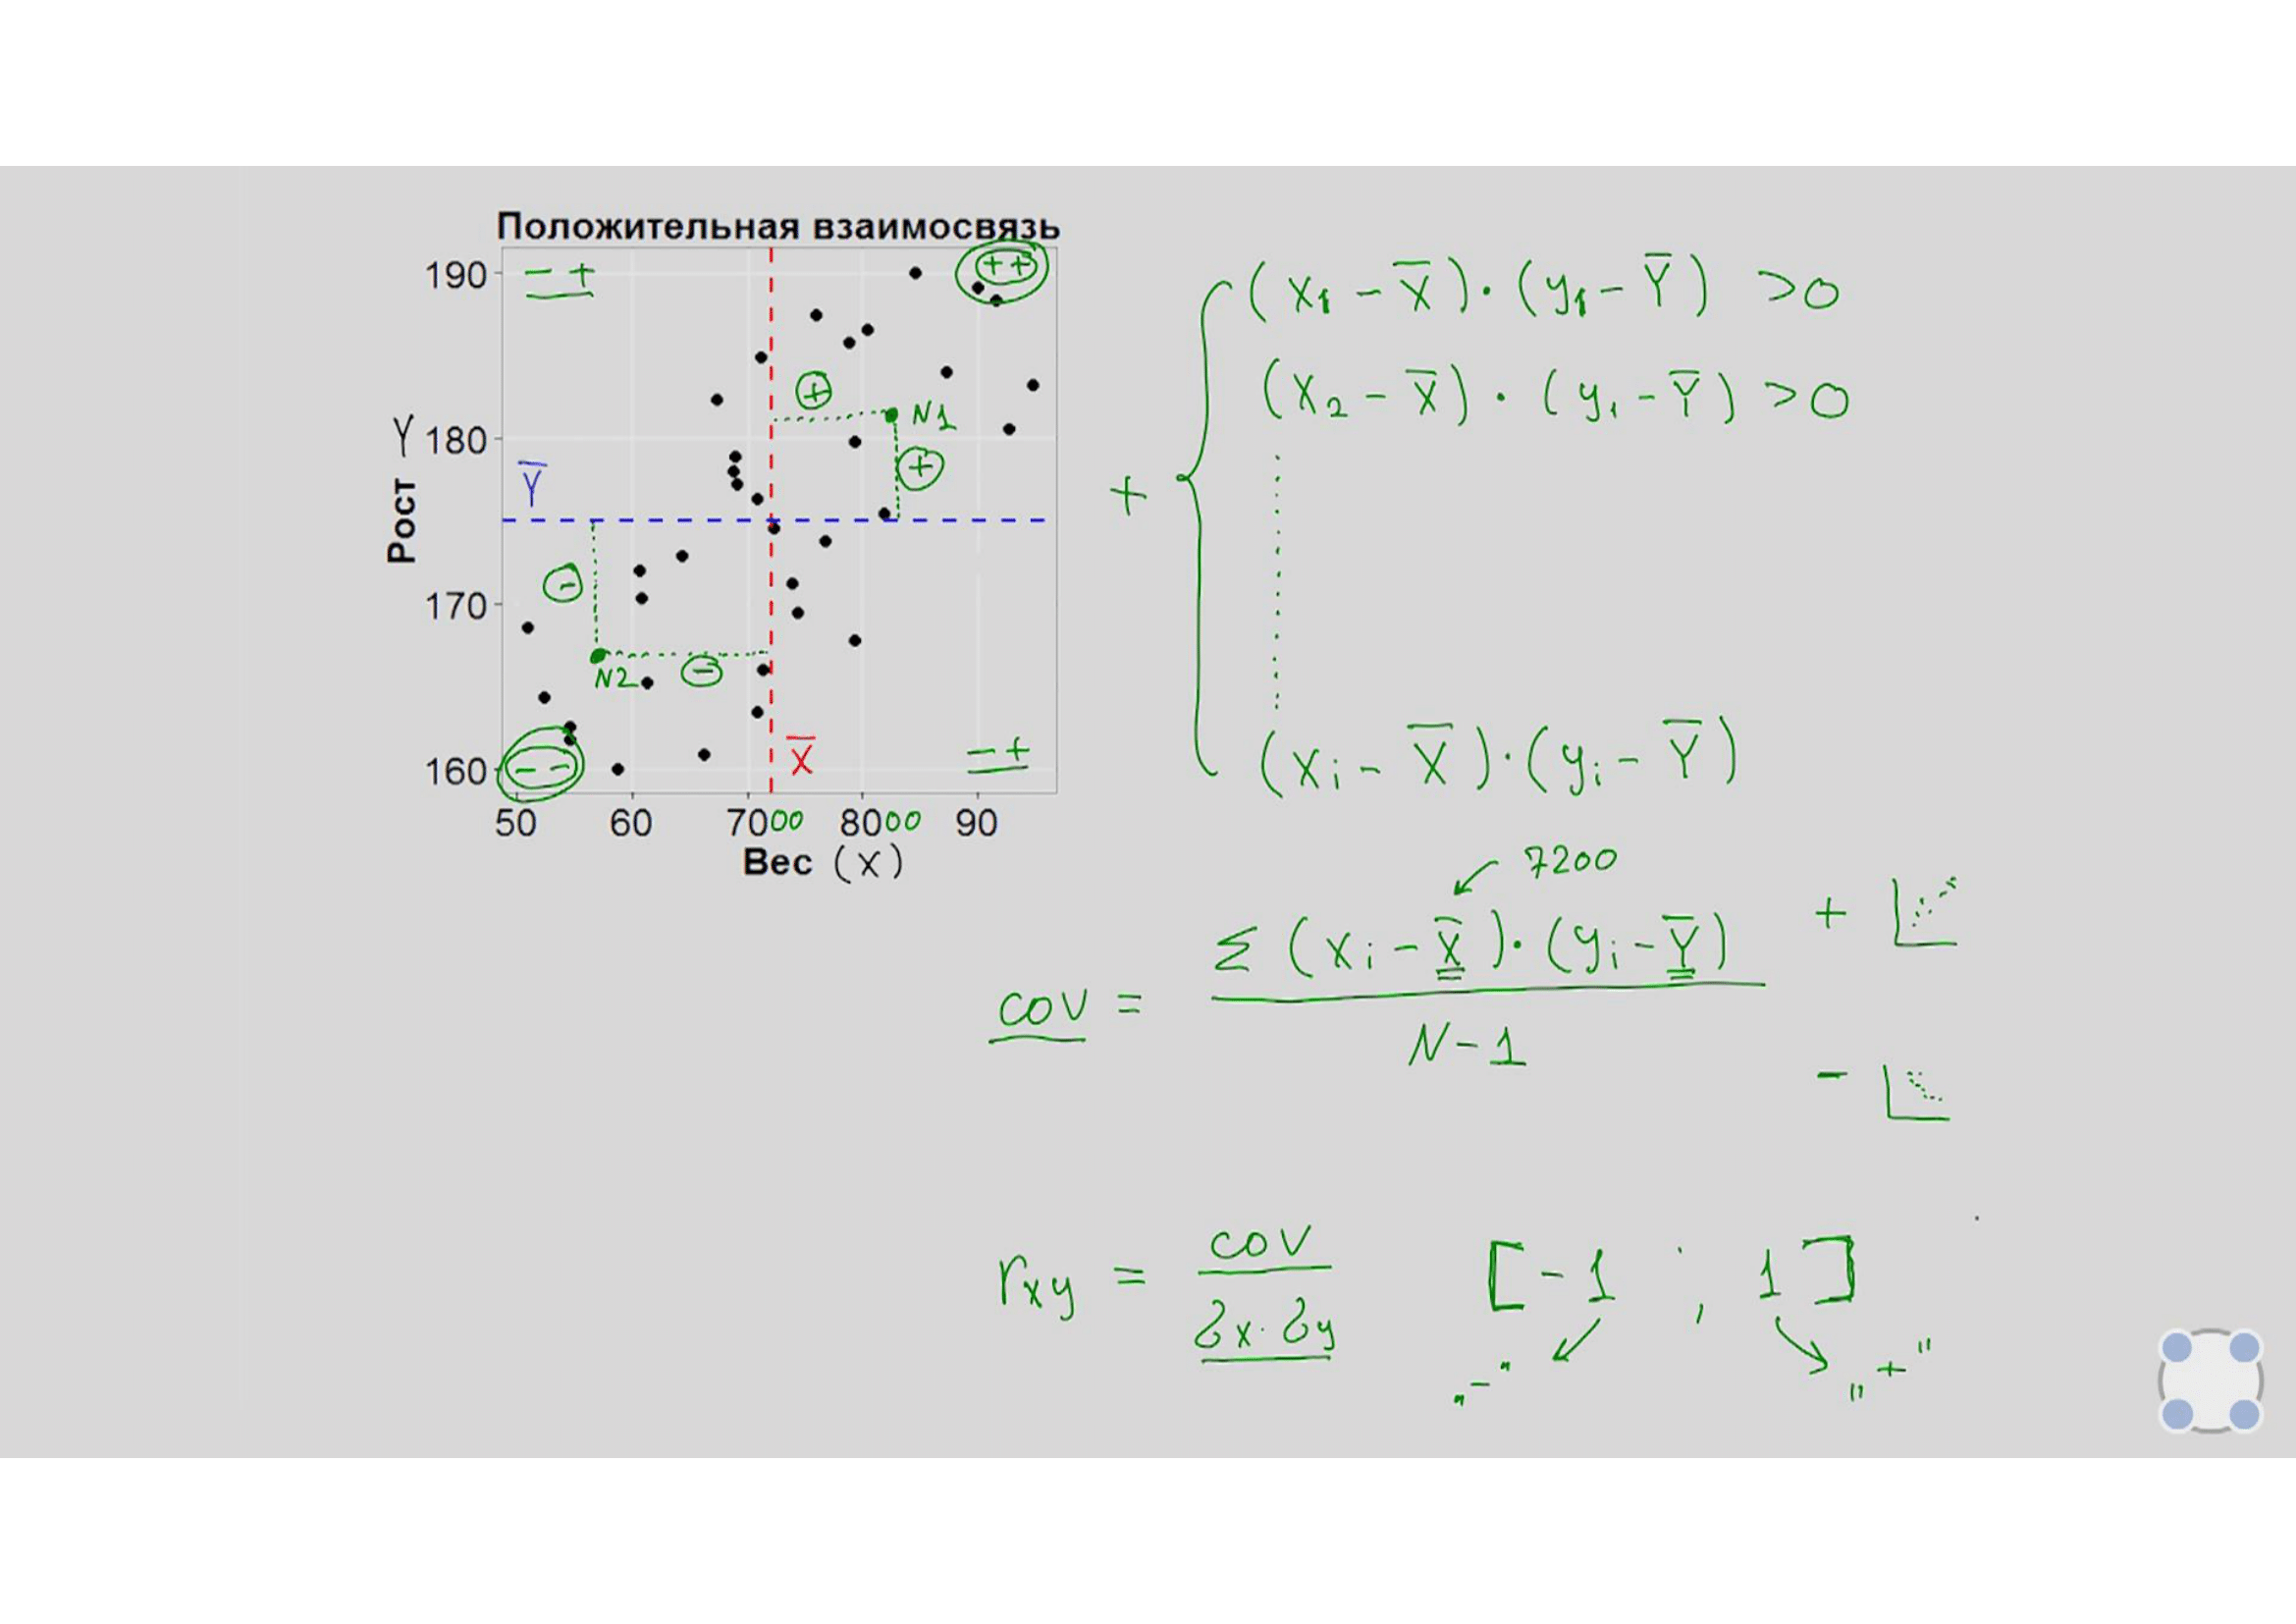 Положительная взаимосвязь
190
180
170
160
Y
Рост
50 60 7000 8000 90
Вес (X)
- +
++
+
N1
+
Y̅
-
N2
-
- -
X̅
- +
+
(x1 - X̅)·(y1 - Y̅) >0
(x2 - X̅)·(y1 - Y̅) >0
(xi - X̅)·(yi - Y̅)
7200
cov = Σ(xi - X̅)·(yi - Y̅) / N-1
+
-
rxy = cov / δx·δy [-1 ; 1]
„-" „+"